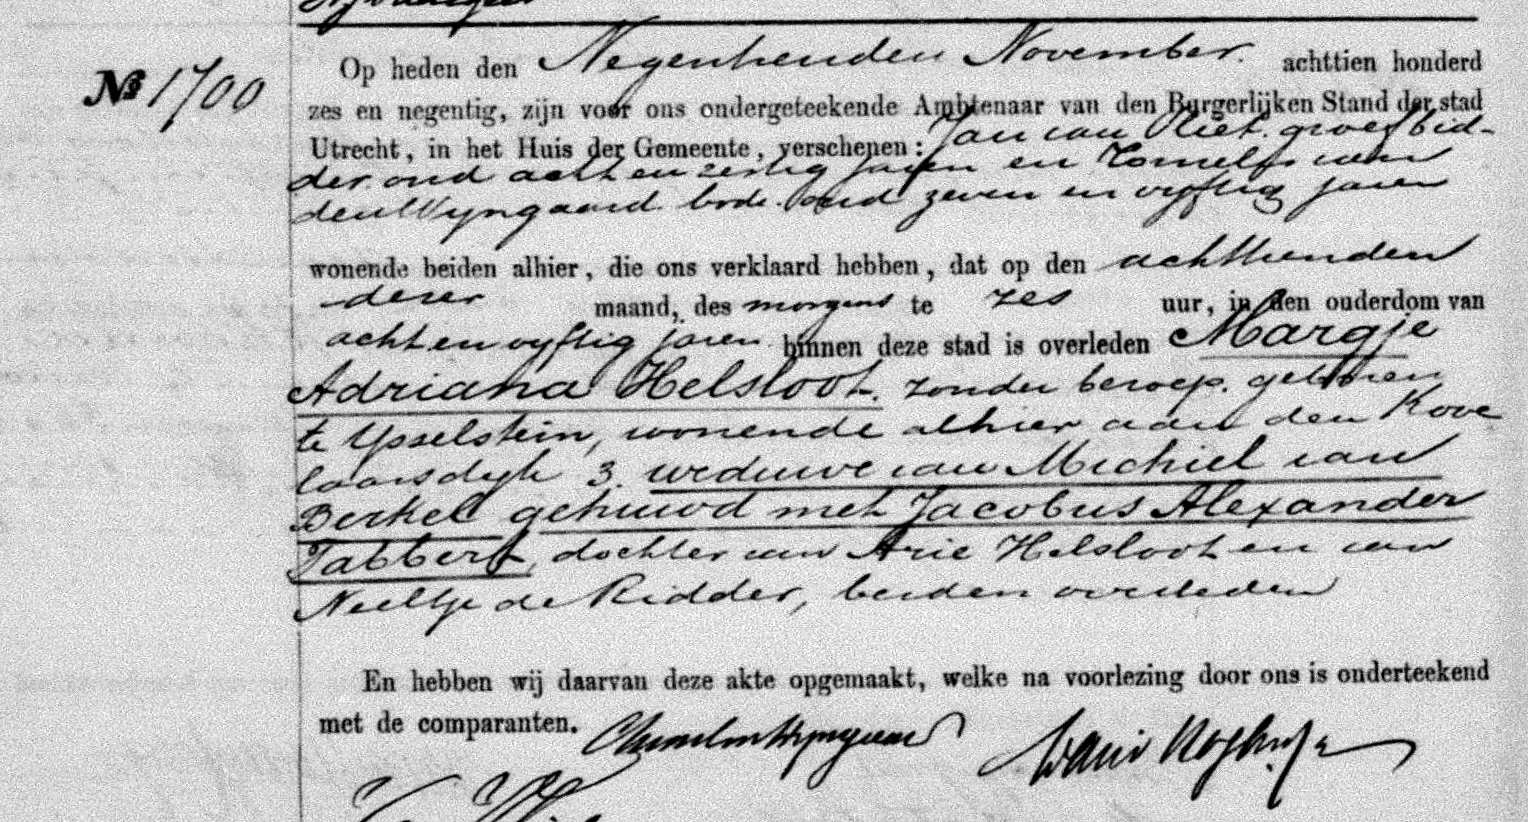 No 1700
Op heden den Negentienden November. achttien honderd
zes en negentig, zijn voor ons ondergeteekende Ambtenaar van den Burgerlijken Stand der stad
Utrecht, in het Huis der Gemeente, verschenen: Jan van Vliet. groefbid-
der. oud acht en zestig jaren en Cornelis van
den Wyngaard. bode. oud zeven en vyftig jaren
wonende beiden alhier, die ons verklaard hebben, dat op den achttienden
dezer maand, des morgens te zes uur, in den ouderdom van
acht en vyftig jaren binnen deze stad is overleden Margje
Adriana Helsloot. zonder beroep. geboren
te Ysselstein, wonende alhier aan den Kove
laarsdyk 3. weduwe van Michiel van
Berkel gehuwd met Jacobus Alexander
Tabbert, dochter van Arie Helsloot en van
Neeltje de Ridder, beiden overleden
En hebben wij daarvan deze akte opgemaakt, welke na voorlezing door ons is onderteekend
met de comparanten.